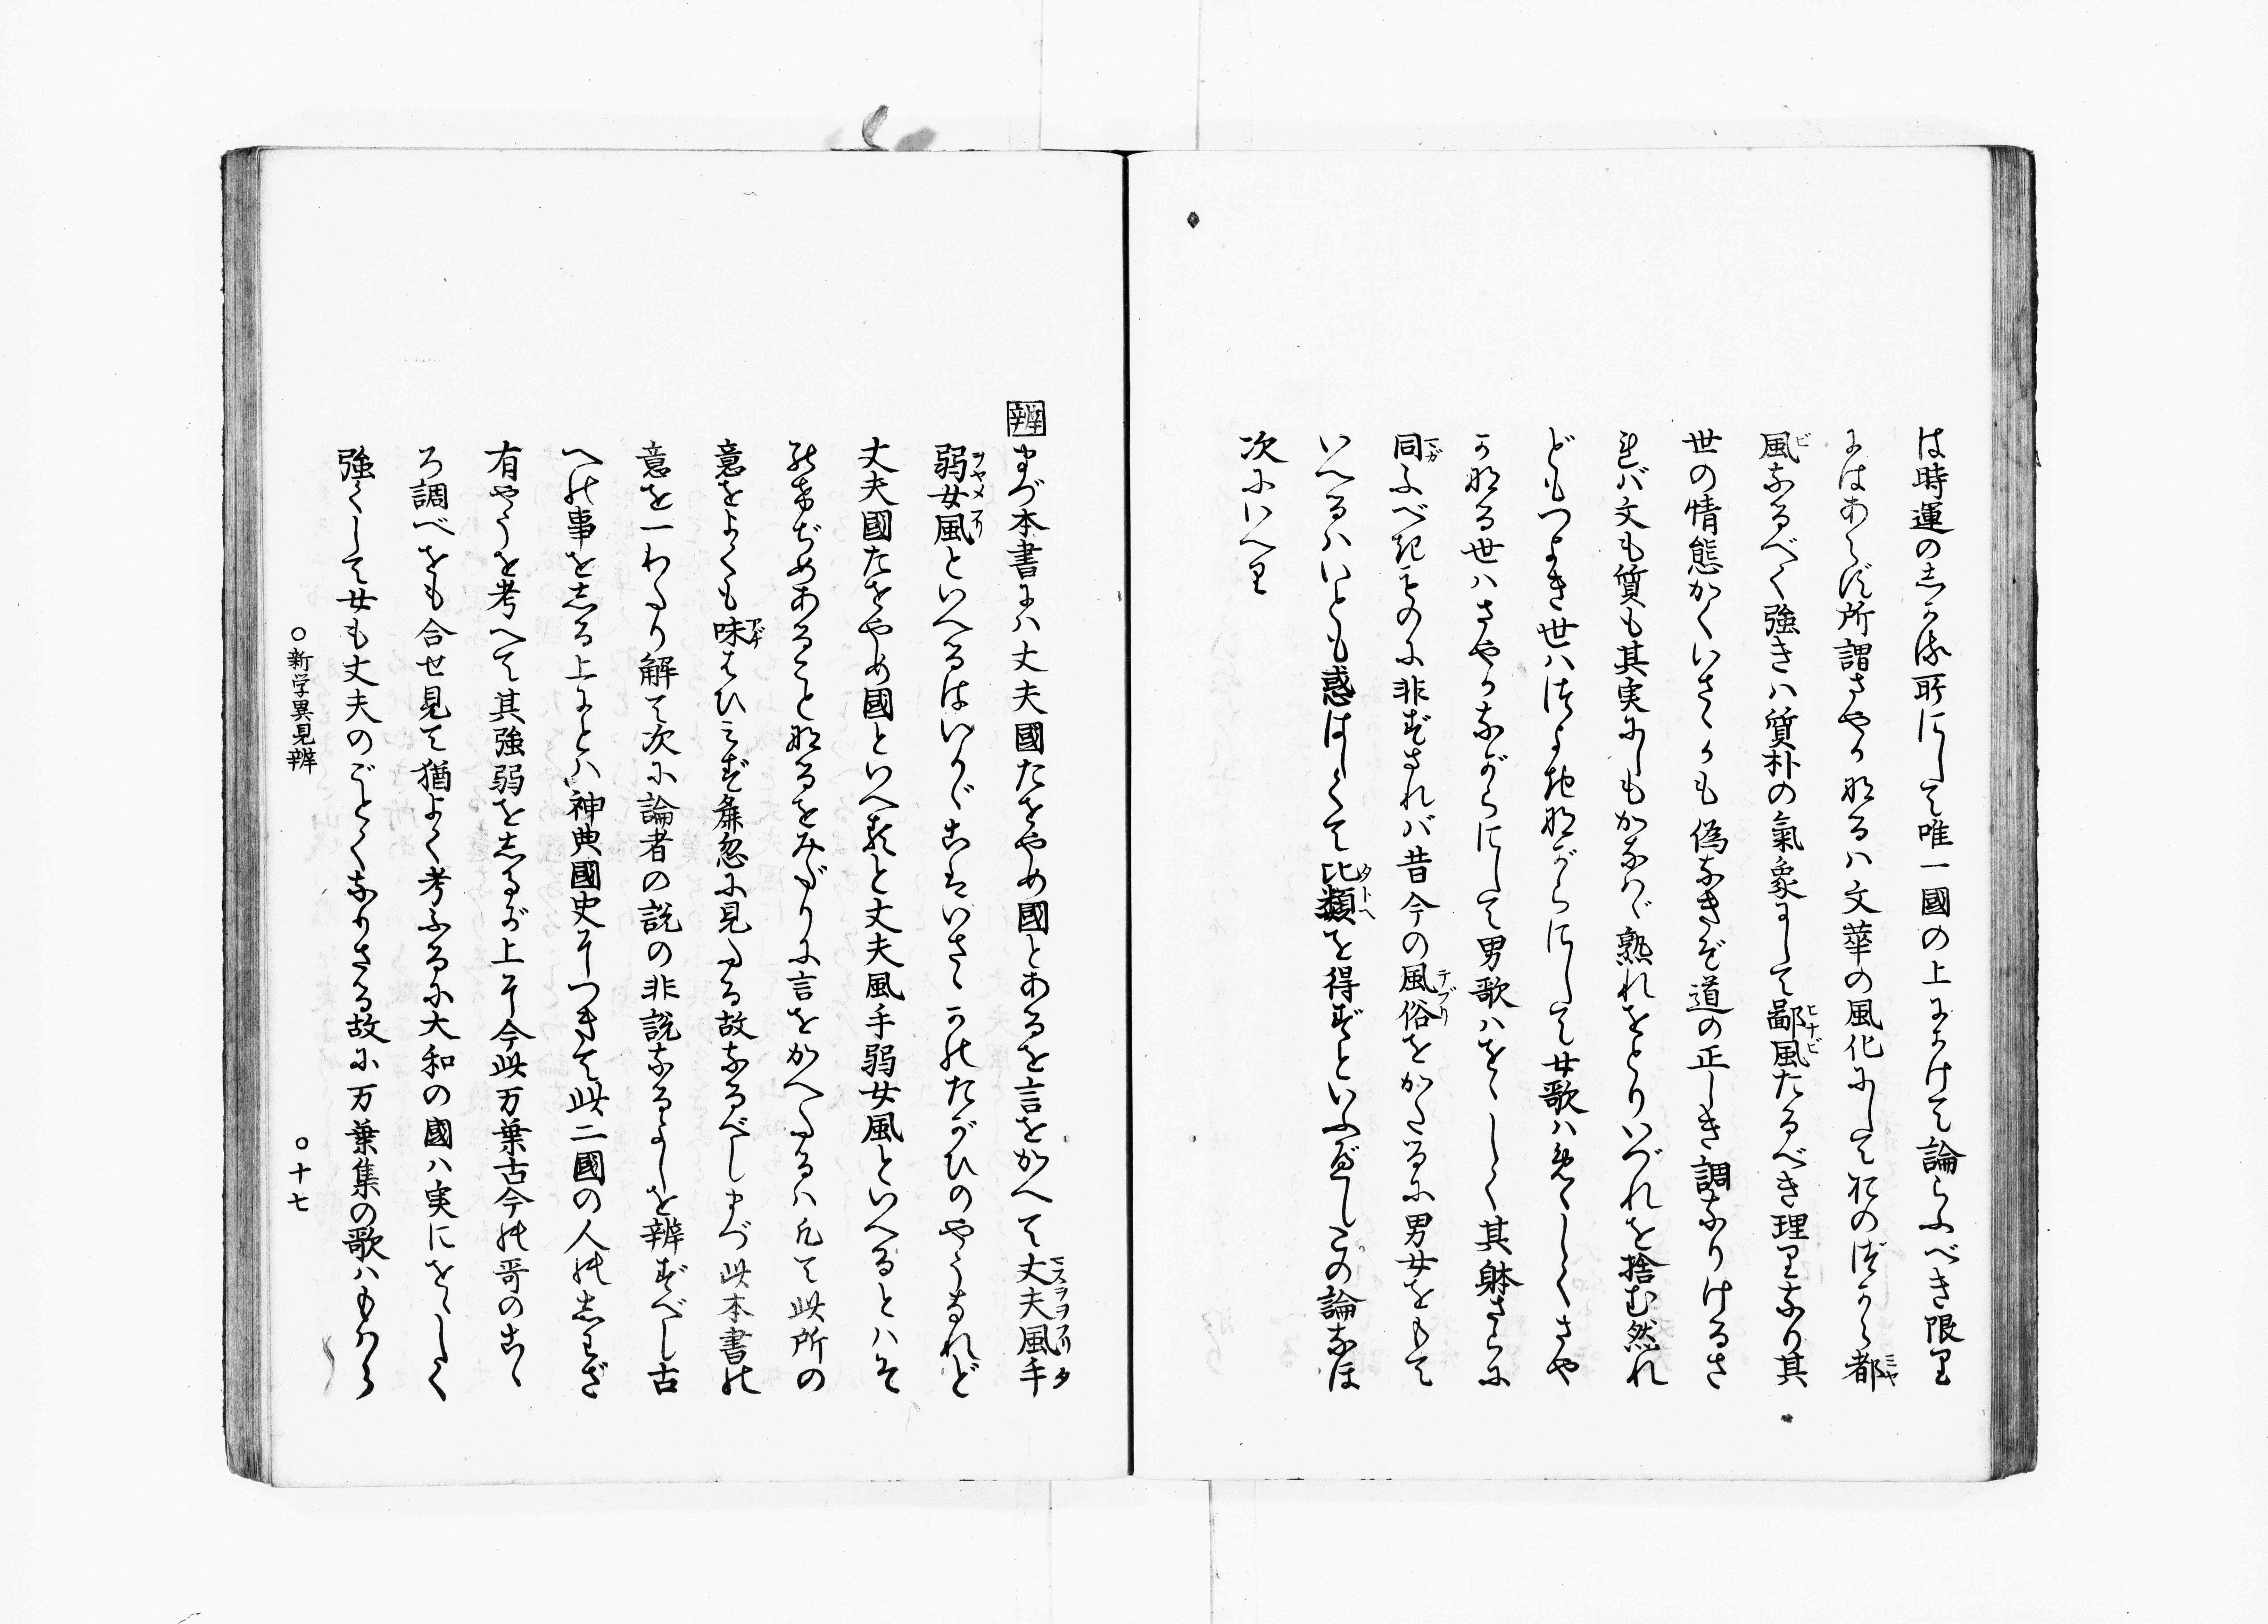 は時運のしかる所にして唯一國の上にかけて論らふべき限り
にはあらず所謂さやかなるハ文華の風化にしておのづから都
風なるべく強きハ質朴の氣象にして鄙風たるべき理りなり其
世の情態かくいさゝかも偽なきぞ道の正しき調なりけるさ
れバ文も質も其実にしもかなハゞ熟れをとりいづれを捨む然れ
どもつよき世ハつよきながらにして女歌ハめゝしくさや
かなる世ハさやかながらにして男歌ハをゝしく其躰さらに
同ふべきものに非ずされバ昔今の風俗をかたるに男女をもて
いへるハいとも惑はしくて比類を得ずといふべしこの論なほ
次にいへり
辨 まづ本書にハ丈夫國たをやめ國とあるを言をかへて丈夫風手
弱女風といへるはいかゞこはいさゝかのたがひのやうなれど
丈夫國たをやめ國といへると丈夫風手弱女風といへるとハそ
のけぢめあることなるをみだりに言をかへたるハ凡て此所の
意をよくも味はひミず麁忽に見たる故なるべしまづ此本書の
意を一わたり解て次に論者の説の非説なるよしを辨ずべし古
への事をしる上にとハ神典國史につきて此二國の人のしわざ
有やうを考へて其強弱をしるが上に今此万葉古今の哥のこゝ
ろ調べをも合せ見て猶よく考ふるに大和の國ハ実にをゝしく
強くして女も丈夫のごとくなりさる故に万葉集の歌ハもはら
○新学異見辨 ○十七